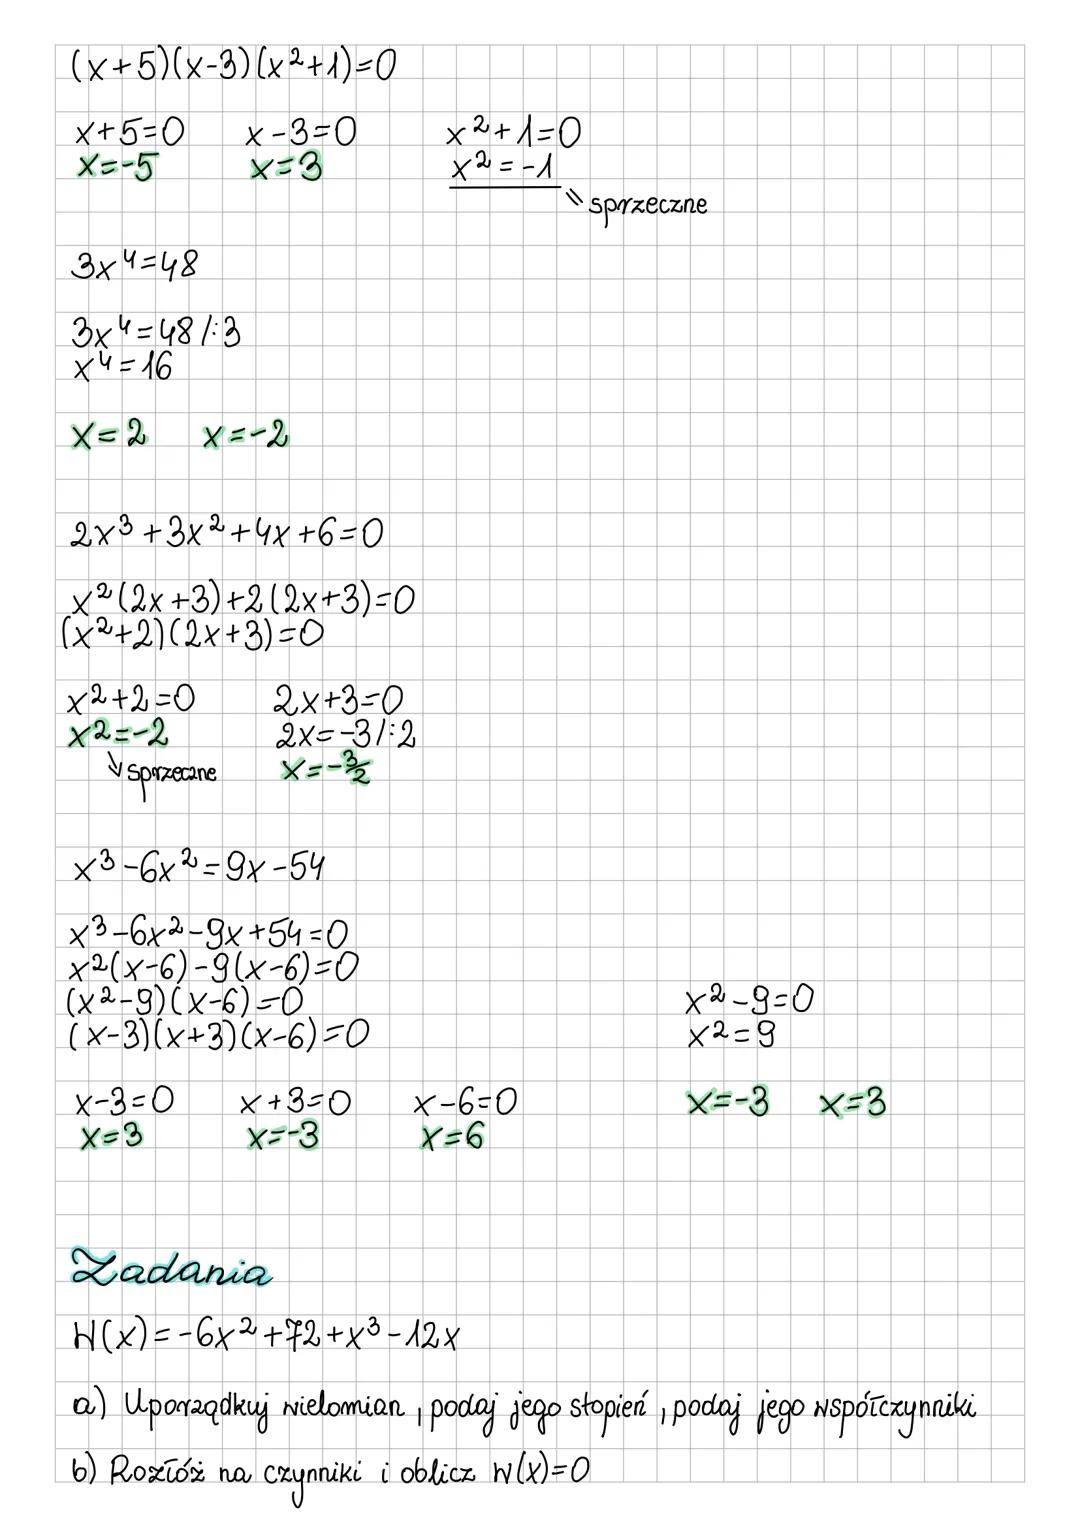 (x+5)(x-3)(x²+1)=0
x+5=0 x-3=0 x²+1=0
x=-5 x=3 x²=-1
⇘ sprzeczne
3x⁴=48
3x⁴=48 /:3
x⁴=16
x=2 x=-2
2x³+3x²+4x+6=0
x²(2x+3)+2(2x+3)=0
(x²+2)(2x+3)=0
x²+2=0 2x+3=0
x²=-2 2x=-3 /:2
⇓ sprzeczne x=-3/2
x³-6x²=9x-54
x³-6x²-9x+54=0
x²(x-6)-9(x-6)=0
(x²-9)(x-6)=0 x²-9=0
(x-3)(x+3)(x-6)=0 x²=9
x-3=0 x+3=0 x-6=0 x=-3 x=3
x=3 x=-3 x=6
Zadania
W(x)=-6x²+72+x³-12x
a) Uporządkuj wielomian, podaj jego stopień, podaj jego współczynniki
b) Rozłóż na czynniki i oblicz W(x)=0